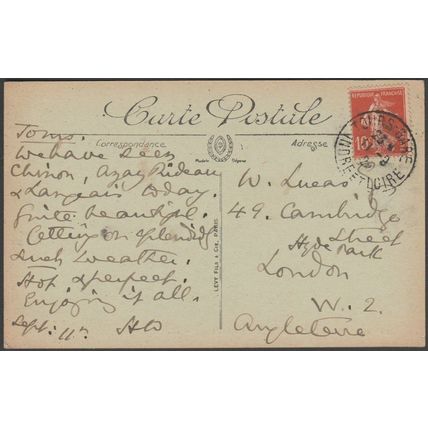 Carte Postale
Correspondance
Adresse
REPUBLIQUE FRANÇAISE
10
TOURS-GARE
INDRE-ET-LOIRE
Modèle Déposé
Tours.
We have seen
Chinon, Azay Rideau
& Langeais today.
Quite beautiful.
Getting on splendidly
Such weather.
Hot & perfect.
Enjoying it all.
Sept. 11th
LÉVY FILS & Cie, PARIS
W. Lucas
49. Cambridge
Street
Hyde Park
London
W. 2.
Angleterre